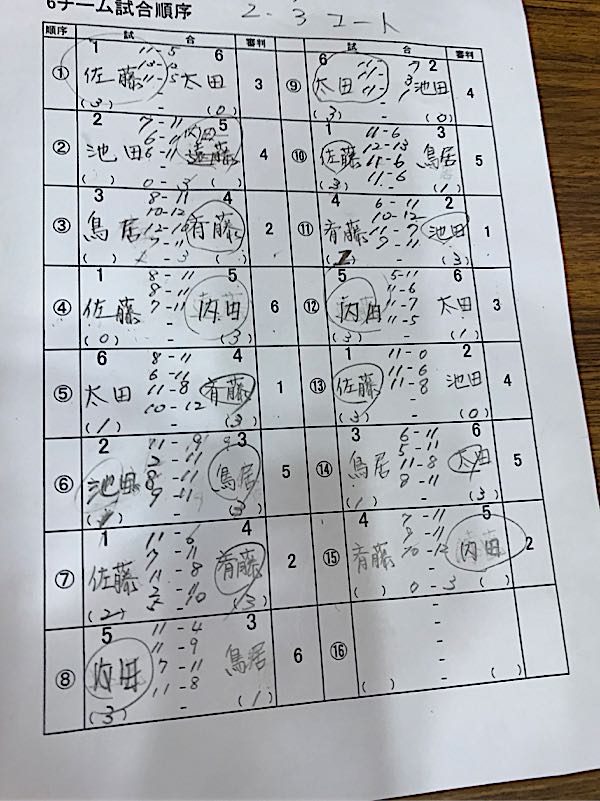 6チーム試合順序
2.3コート
順序 試 合 審判 試 合 審判
① 1 佐藤 11-5 11-5 6 太田 3
(3) - (0)
② 2 池田 7-11 6-11 5 4
( ) 0-3 ( )
③ 3 鳥居 8-11 10-12 7-11 4 斉藤 2
④ 1 佐藤 8-11 8-11 7-11 5 内田 6
(0) - (3)
⑤ 6 太田 8-11 6-11 11-8 10-12 4 斉藤 1
(1) (3)
⑥ 2 池田 11-9 2-11 8-11 9-11 3 鳥居 5
(3)
⑦ 1 佐藤 11-6 7-11 11-8 4 斉藤 2
(2) (3)
⑧ 5 内田 11-4 11-9 7-11 11-8 3 鳥居 6
(3) (1)
⑨ 6 太田 2 池田 4
(3) - (0)
⑩ 1 佐藤 11-6 12-13 11-6 11-6 3 鳥居 5
(3) (1)
⑪ 4 斉藤 6-11 10-12 11-7 7-11 2 池田 1
(3)
⑫ 5 内田 5-11 11-6 11-7 11-5 6 太田 3
(3) (1)
⑬ 1 佐藤 11-0 11-6 11-8 2 池田 4
(3) - (0)
⑭ 3 鳥居 6-11 5-11 11-8 8-11 6 太田 5
(1) (3)
⑮ 4 斉藤 7-11 9-11 10-12 5 内田 2
( ) 0-3 ( )
⑯ - - - -
( ) - ( )